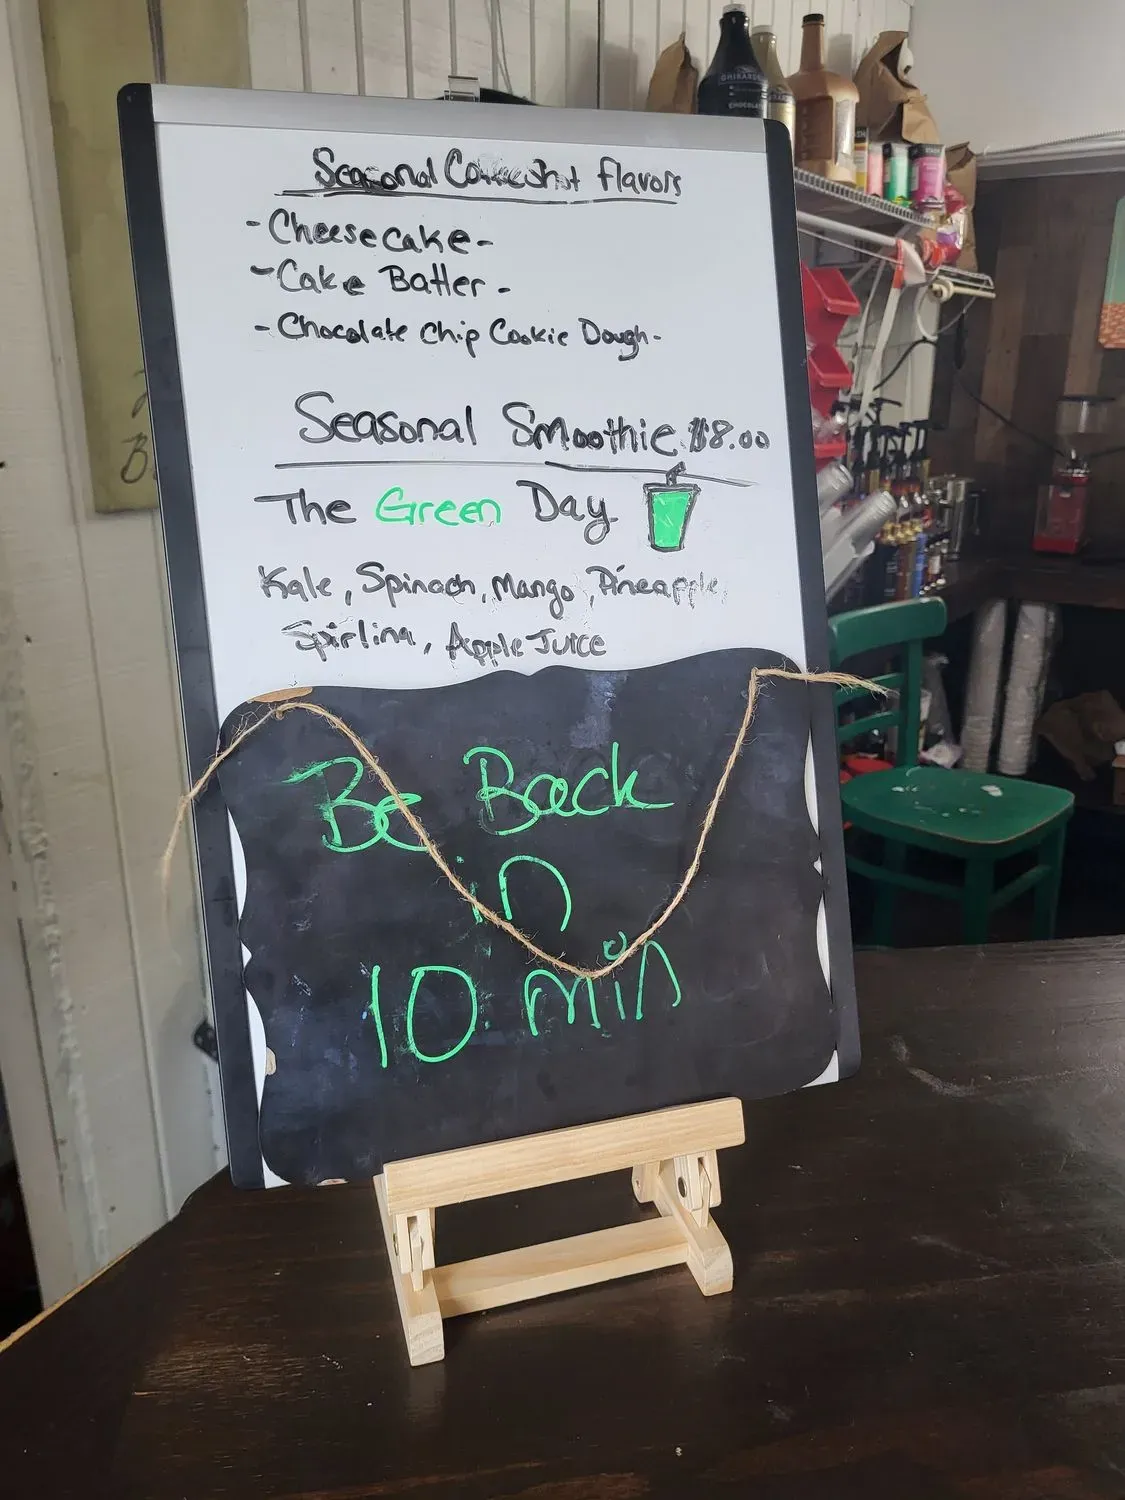 Seasonal Coffee Shot Flavors
- Cheesecake -
- Cake Batter -
- Chocolate Chip Cookie Dough -
Seasonal Smoothie $8.00
The Green Day
Kale, Spinach, Mango, Pineapple,
Spirlina, Apple Juice
Be Back
in
10 min
GHIRARDELLI
CHOCOLATE